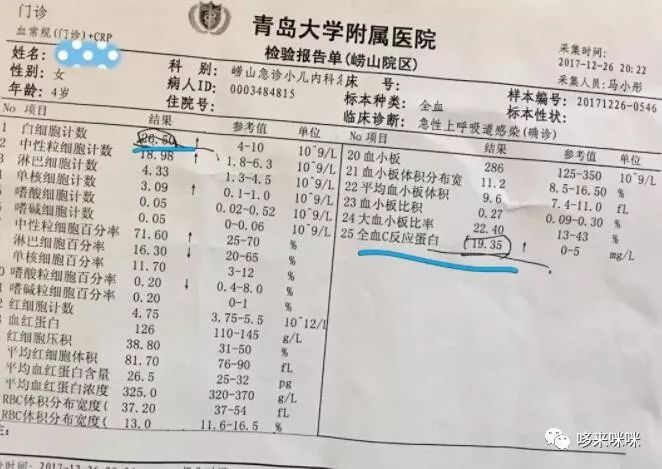 门诊
血常规(门诊)+CRP
青岛大学附属医院
检验报告单(崂山院区)
采集时间:
2017-12-26 20:22
采集人员:马小彤
姓名:
性别: 女
年龄: 4岁
科 别: 崂山急诊小儿内科
病人ID: 0003484815
住院号:
床 号:
标本种类: 全血
临床诊断: 急性上呼吸道感染(确诊)
样本编号: 20171226-0546
标本性状:
No 项目 结果 参考值 单位
1 白细胞计数 26.50 ↑ 4-10 10^9/L
2 中性粒细胞计数 18.98 ↑ 1.8-6.3 10^9/L
3 淋巴细胞计数 4.33 1.3-4.5 10^9/L
单核细胞计数 3.09 ↑ 0.1-1.0 10^9/L
嗜酸细胞计数 0.05 0.02-0.52 10^9/L
嗜碱细胞计数 0.05 0-0.06 10^9/L
中性粒细胞百分率 71.60 ↑ 25-70 %
淋巴细胞百分率 16.30 ↓ 20-65 %
单核细胞百分率 11.70 3-12 %
嗜酸粒细胞百分率 0.20 ↓ 0.4-8.0 %
嗜碱粒细胞百分率 0.20 0-1 %
红细胞计数 4.75 3.75-5.5 10^12/L
血红蛋白 126 110-145 g/L
红细胞压积 38.80 31-50 %
平均红细胞体积 81.70 76-90 fL
平均血红蛋白含量 26.5 25-32 pg
平均血红蛋白浓度 325.0 320-370 g/L
RBC体积分布宽度( 37.20 37-54 fL
RBC体积分布宽度( 13.0 11.6-16.5 %
No 项目 结果 参考值 单位
20 血小板 286 125-350 10^9/L
21 血小板体积分布宽 11.2 8.5-16.50 %
22 平均血小板体积 9.6 7.4-11.0 fL
23 血小板比积 0.27 0.09-0.30 %
24 大血小板比率 22.40 13-43 %
25 全血C反应蛋白 19.35 ↑ 0-5 mg/L
注:
哆来咪咪